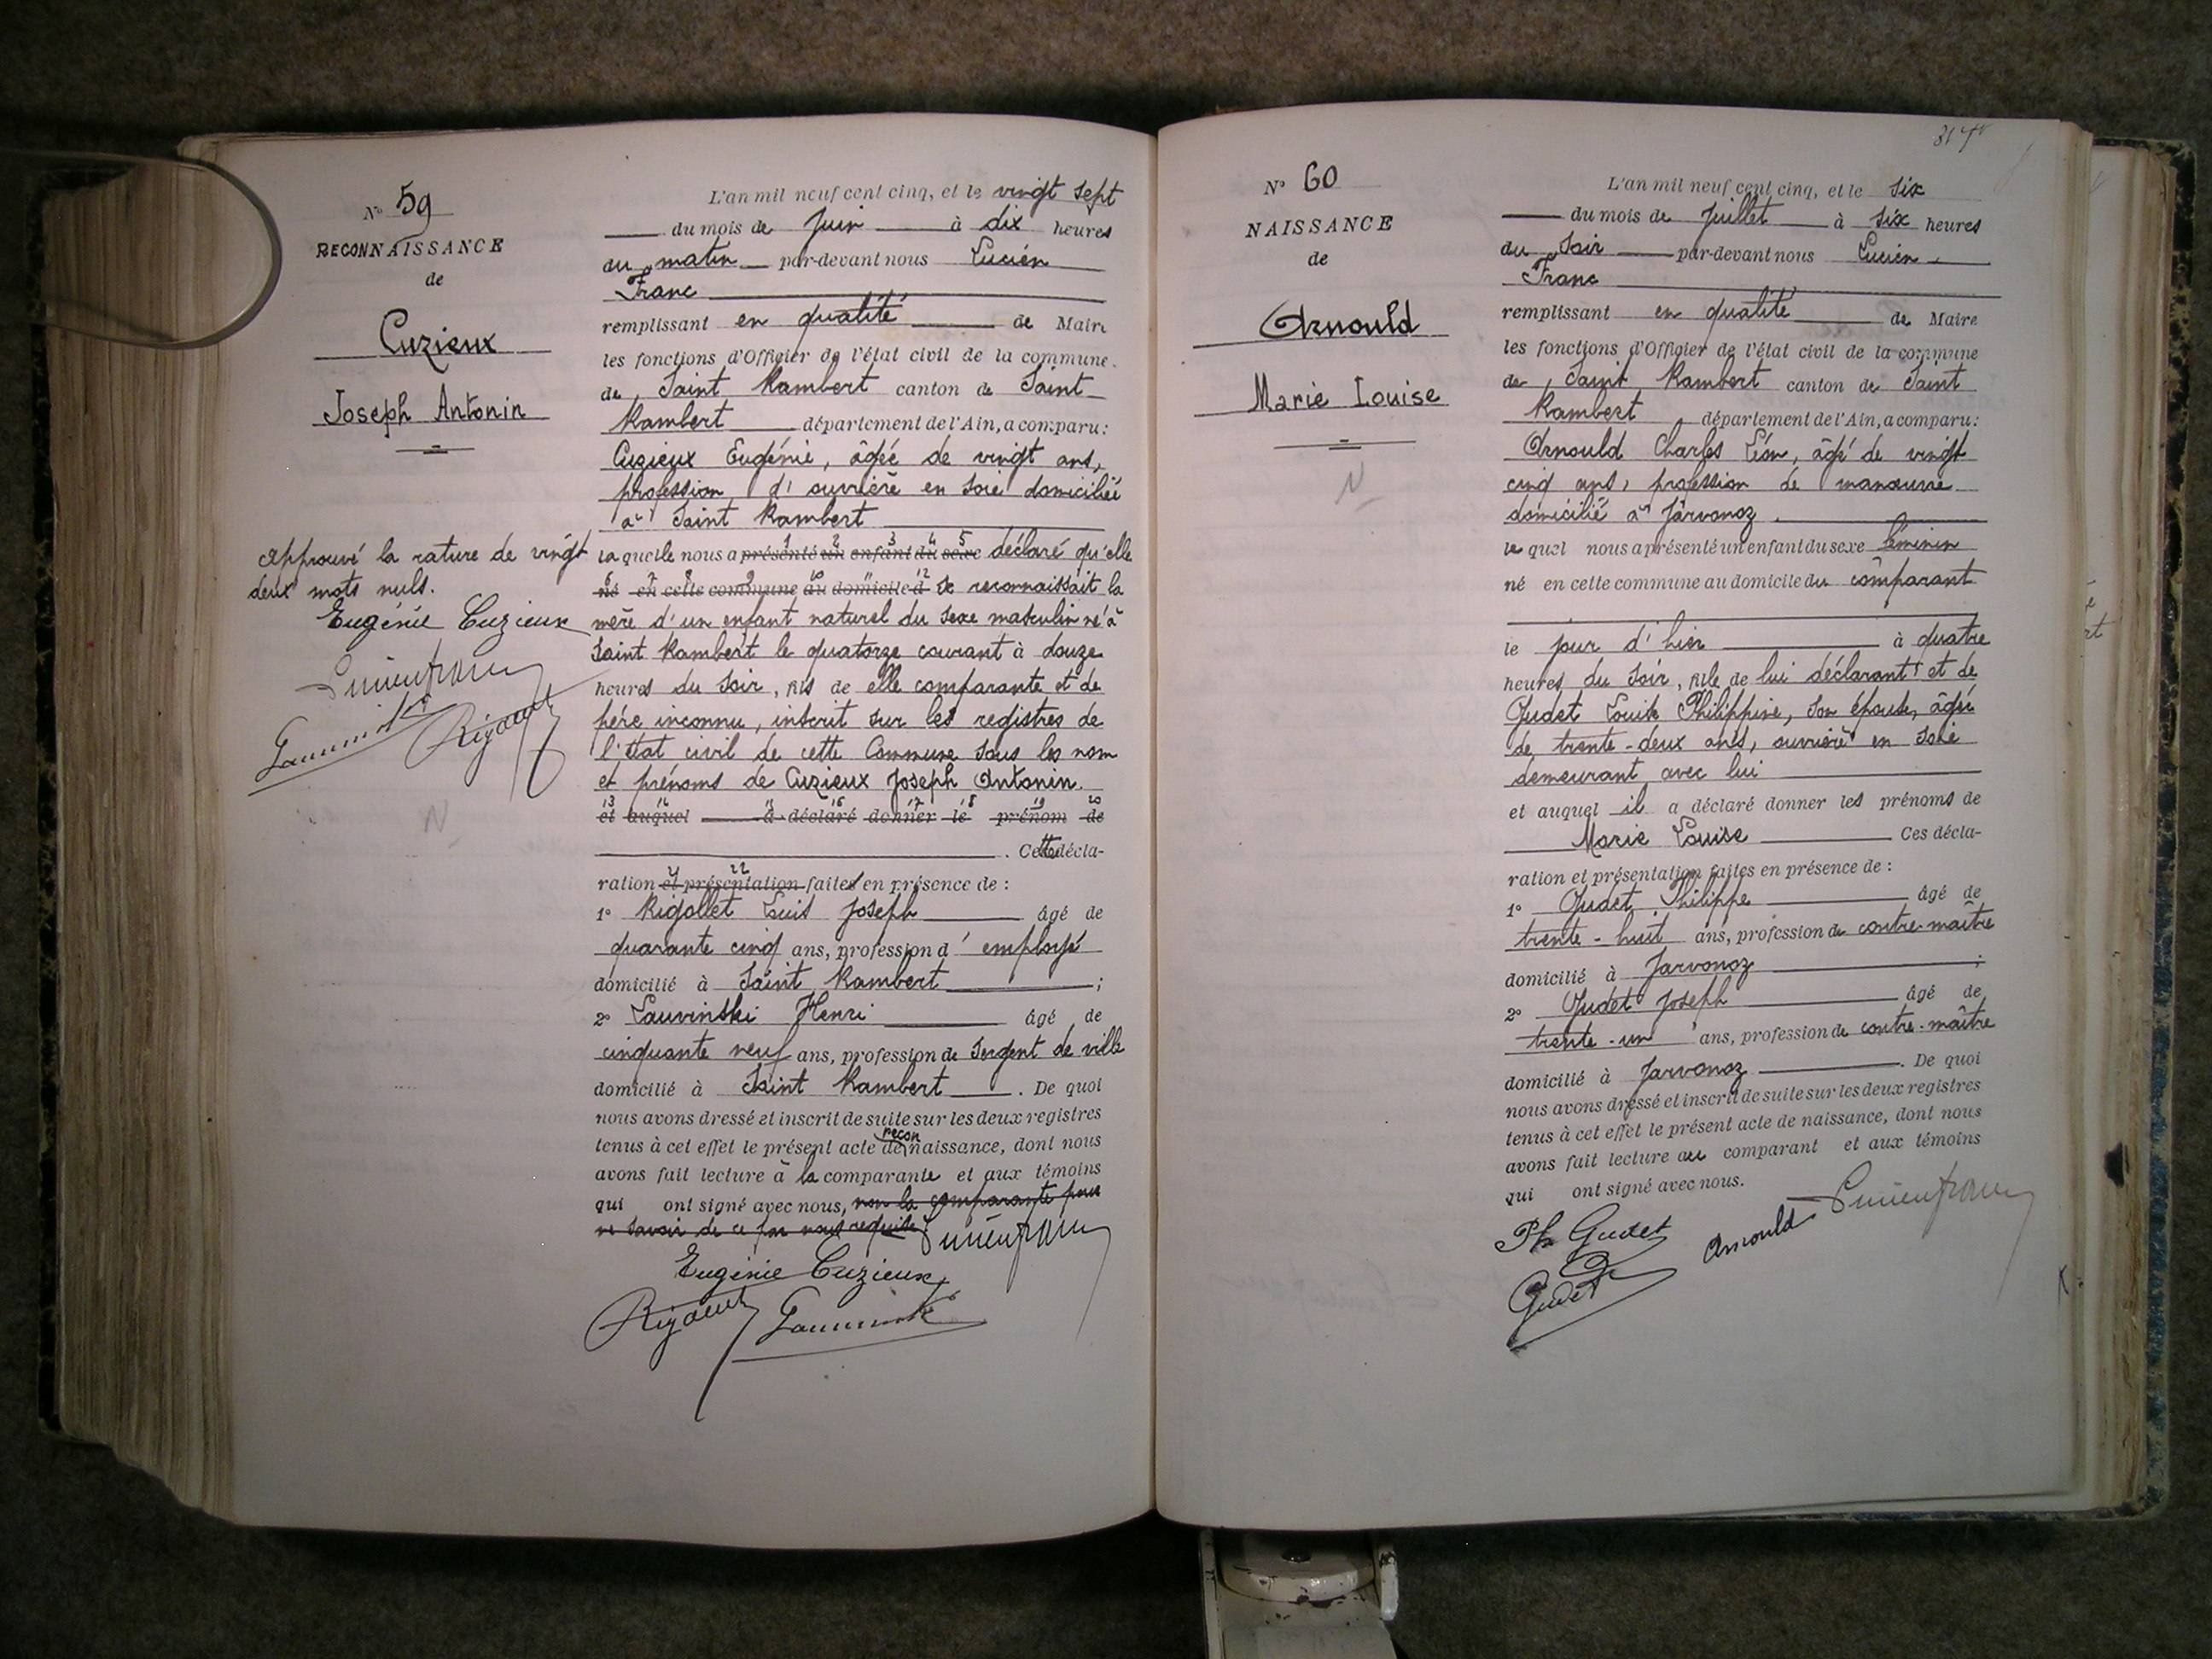 N° 59
RECONNAISSANCE
de
Cuzieux
Joseph Antonin
approuvé la rature de vingt
deux mots nuls.
Eugénie Cuzieux
L'an mil neuf cent cinq, et le vingt sept
du mois de Juin à dix heures
du matin par-devant nous Lucien
Franc
remplissant en qualité de Maire
les fonctions d'Officier de l'état civil de la commune
de Saint Rambert canton de Saint
Rambert département de l'Ain, a comparu:
Cuzieux Eugénie, âgée de vingt ans,
profession d'ouvrière en soie domiciliée
à Saint Rambert
laquelle nous a présenté un enfant du sexe déclaré qu'elle
né en cette commune au domicile d se reconnaissait la
mère d'un enfant naturel du sexe masculin né à
Saint Rambert le quatorze courant à douze
heures du soir, fils de elle comparante et de
père inconnu, inscrit sur les registres de
l'état civil de cette Commune sous les nom
et prénoms de Cuzieux Joseph Antonin.
et auquel a déclaré donner le prénom de
. Cette décla-
ration et présentation faites en présence de :
1° Rigollet Louis Joseph âgé de
quarante cinq ans, profession d'employé
domicilié à Saint Rambert ;
2° Lauvinski Henri âgé de
cinquante neuf ans, profession de Sergent de ville
domicilié à Saint Rambert . De quoi
nous avons dressé et inscrit de suite sur les deux registres
tenus à cet effet le présent acte de reconnaissance, dont nous
avons fait lecture à la comparante et aux témoins
qui ont signé avec nous, non la comparante pour
ne savoir de ce par nous requise
Eugénie Cuzieux
N° 60
NAISSANCE
de
Arnould
Marie Louise
N
L'an mil neuf cent cinq, et le six
du mois de Juillet à six heures
du soir par-devant nous Lucien
Franc
remplissant en qualité de Maire
les fonctions d'Officier de l'état civil de la commune
de Saint Rambert canton de Saint
Rambert département de l'Ain, a comparu:
Arnould Charles Léon, âgé de vingt
cinq ans, profession de manœuvre
domicilié à Javornoz
le quel nous a présenté un enfant du sexe féminin
né en cette commune au domicile du comparant
le jour d'hier à quatre
heures du soir, fille de lui déclarant et de
Gudet Louise Philippine, son épouse, âgée
de trente-deux ans, ouvrière en soie
demeurant avec lui
et auquel il a déclaré donner les prénoms de
Marie Louise Ces décla-
ration et présentation faites en présence de :
1° Gudet Philippe âgé de
trente-huit ans, profession de contre-maître
domicilié à Javornoz ;
2° Gudet Joseph âgé de
trente-un ans, profession de contre-maître
domicilié à Javornoz . De quoi
nous avons dressé et inscrit de suite sur les deux registres
tenus à cet effet le présent acte de naissance, dont nous
avons fait lecture au comparant et aux témoins
qui ont signé avec nous.
Ph Gudet
Arnould
Gudet